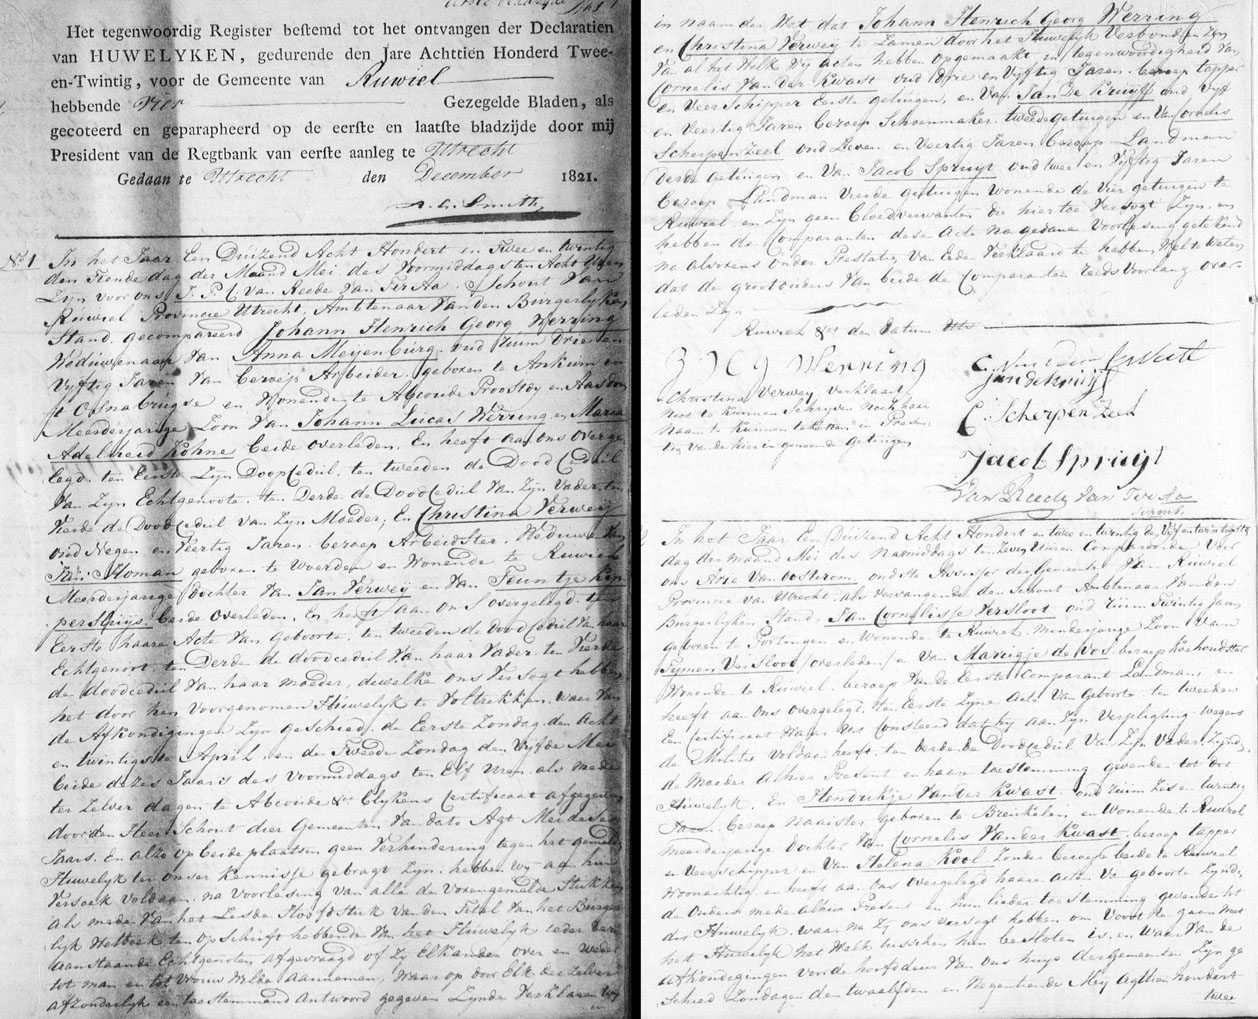 Het tegenwoordig Register bestemd tot het ontvangen der Declaratien
van HUWELYKEN, gedurende den Jare Achttien Honderd Twee-
en-Twintig, voor de Gemeente van Ruwiel
hebbende Vier Gezegelde Bladen, als
gecoteerd en geparapheerd op de eerste en laatste bladzijde door mij
President van de Regtbank van eersten aanleg te Utrecht
Gedaan te Utrecht den December 1821.
No. 1 In het Jaar Een Duizend Acht Hondert en Twee en twintig
den Tiende dag der Maand Mei des Voormiddags ten Acht Uren
Zijn voor ons J. P. C. van Reede van Ter Aa. Schout Van
Ruwiel Provincie Utrecht, Ambtenaar Van den Burgerlyke
Stand, gecompareerd Johann Henrich Georg Werring
Weduwenaar Van Anna Meijenburg, oud Ruim Drie en
Vyftig Jaren Van beroep Arbeider, geboren te Ankum in
t Osnabrugse en Wonende te Abcoude Proosdy en Aasdom
Meerderjarige Zoon Van Johann Lucas Werring en Maria
Adelheid Kohne beide overleden, En heeft aan ons overge-
legd, ten Eerste Zyn Doopcedul, ten tweeden de Doodcedul
Van Zyn Echtgenote, ten Derde de Doodcedul Van Zyn Vader, ten
Vierde de Doodcedul van Zyn Moeder, En Christina Verweij
oud Negen en Veertig Jaren, beroep Arbeidster Weduwe Van
Jan Homan geboren te Woerden en Wonende te Ruwiel
Meerderjarige Dochter Van Jan Verweij en Van Teuntje Kop
persSuijs beide Overleden, En heeft aan ons overgelegd, ten
Eerste haare Acte Van Geboorte, ten tweeden de Doodcedul Van haar
Echtgenoot, ten Derde de doodcedul Van haar Vader, ten Vierde
de doodcedul Van haar moeder, dewelke ons Versogt hebben
het door hen Voorgenomen Huwelyk te Voltrekken, waar Van
de Afkondigingen Zyn Geschied, de Eerste Zondag den Acht
en twintigste April, en de Tweede Zondag den Vijfde Mei
beide dezes Jaars des Voormiddags ten Elf Uren, als mede
ter Zelver dagen te Abcoude &c blykens Certificaat afgegeven
door den Heer Schout dier Gemeenten, Van dato Agt Mei dezes
Jaars. En alzo op beide plaatsen geen Verhindering tegen het gemelde
Huwelyk ter onser Kennisse gebragt Zyn, hebben wij aan hun
Versoek voldaan, na Voorlesing van alle de Voorengemelde Stukken
als mede Van het Sesde Hoofdstuk Van den Titel Van het Burger-
lyk Wetboek ten Opschrift hebbende Van het Huwelyk ieder der
aanstaande Echtgenoten, afgevraagd of Zy Elkander over en weder
tot man en tot Vrouw Wilde Aannemen, Waar op door Elk der Zelver
afzonderlyk een toestemmend Antwoord gegeven Zynde Verklaren wy
in naam der Wet dat Johann Henrich Georg Werring
en Christina Verwey te Zamen door het Huwelyk Verbonden Zyn
Van al het Welk Wy acten hebben opgemaakt in tegenwoordigheid Van
Cornelis Van der Kwast oud Drie en Vyftig Jaren, beroep tapper
en Veerschipper Eerste getuigen, en Van Jan De Kruyff oud Vyf
en Veertig Jaren beroep Schoenmaker, tweede getuigen en Van Cornelis
Scherpenzeel oud Zeven en Veertig Jaren beroep Landman
derde getuigen en Van Jacob Spruyt oud twee en Vyftig Jaren
beroep Landman Vierde getuigen Wonende de Vier getuigen te
Ruwiel en Zyn geen bloedverwanten die hier toe Versogt Zyn, en
hebben de Comparanten dese Acte na gedane Voorlesing getekend
na alvorens onder Prestatie Van Eede Verklaard te hebben, Wel te Weten
dat de grootouders Van beide de Comparanten reeds Voorlang over-
leden Zyn
Ruwiel &c de Datum Uts
J H G Werring
Christina Verwey verklaard
niet te kunnen Schryven noch haar
naam te kunnen tekenen in Presen-
tie van de hier in genoemde getuigen
C. Van der Kwast
Jan de Kruijff
C. Scherpenzeel
Jacob Spruijt
Van Reede Van Ter Aa
Schout.
In het Jaar Een Duizend Acht Hondert en twee en twintig de Vyf en twintigste
dag der maand Mei des Namiddags te Zeven Uuren Compareerde Voor
ons Arie Van Oosterom, oudste Assessor der Gemeente Van Ruwiel
Provincie van Utrecht, als Vervangende den Schout Ambtenaar Van den
Burgerlyken Stand, Jan Cornelisse Versloot oud Ruim Twintig Jaren
geboren te Portengen en Wonende te Ruwiel, Minderjarige Zoon Van
Symen Versloot (overleden) en Van Marrigje de Vos, beroep Koehoudster
Wonende te Ruwiel, beroep Van de Eerste Comparant Landman, en
heeft aan Ons overgelegd, ten Eerste Zyne Acte Van Geboorte, ten tweeden
En Certificaat Waar Uit Consteerd dat hy aan Zyn Verpligting wegens
de Militie Voldaan heeft, ten derde de Doodcedul Van Zyn Vader, Zynde
de Moeder Alhier Present en haar toestemming gevende tot dit
Huwelyk. En Hendrikje Van der Kwast, oud Ruim Zes en twintig
Jaren, beroep Naaister geboren te Breukelen, en Wonende te Ruwiel
meerderjarige dochter Van Cornelis Van der Kwast, beroep tapper
en Veerschipper en Van Helena Kool Zonder beroep beide te Ruwiel
Woonachtig en heeft aan Ons overgelegd haare Acte Van geboorte Zynde
de Ouders mede alhier Present en hun beider toestemming gevende tot
dit Huwelyk. waar na Zy ons versogt hebben om Voort te gaan met
het Huwelyk het Welk tusschen hen besloten is, en waar Van de
Afkondigingen voor de hoofddeur Van ons huys der Gemeenten Zyn ge
schied Zondagen den twaalfden en Negentiende Mey Agtien hondert
twee